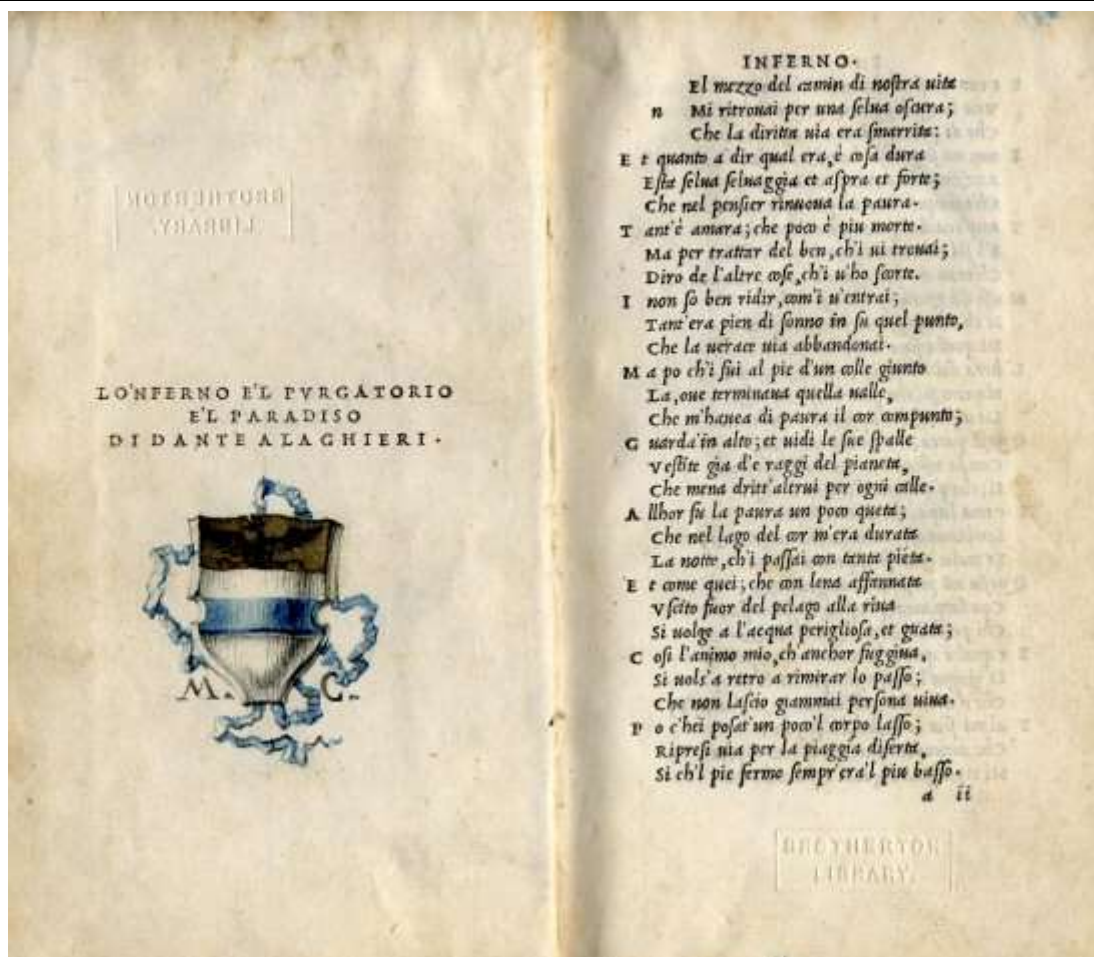 BROTHERTON
LIBRARY.
LO'NFERNO E'L PVRGATORIO
E'L PARADISO
DI DANTE ALAGHIERI.
M. C.
INFERNO.
El mezzo del camin di nostra uita
n Mi ritrouai per una selua oscura;
Che la diritta uia era smarrita:
E t quanto a dir qual era, è cosa dura
Esta selua seluaggia et aspra et forte;
Che nel pensier rinuoua la paura.
T ant'è amara; che poco è piu morte.
Ma per trattar del ben, ch'i ui trouai;
Diro de l'altre cose, ch'i u'ho scorte.
I non so ben ridir, com'i u'entrai;
Tant'era pien di sonno in su quel punto,
Che la uerace uia abbandonai.
M a po ch'i fui al pie d'un colle giunto
La, oue terminaua quella ualle,
Che m'hauea di paura il cor compunto;
G uarda'in alto; et uidi le sue spalle
Vestite gia d'e raggi del pianeta,
Che mena dritt'altrui per ogni calle.
A llhor fu la paura un poco queta;
Che nel lago del cor m'era durata
La notte, ch'i passai con tanta pieta.
E t come quei; che con lena affannata
Vscito fuor del pelago alla riua
Si uolge a l'acqua perigliosa, et guata;
C osi l'animo mio, ch'anchor fuggiua,
Si uols'a retro a rimirar lo passo;
Che non lascio giammai persona uiua.
P o c'hei posat'un poco'l corpo lasso;
Ripresi uia per la piaggia diserta,
Si ch'l pie fermo sempr'era'l piu basso.
a ii
BROTHERTON
LIBRARY.